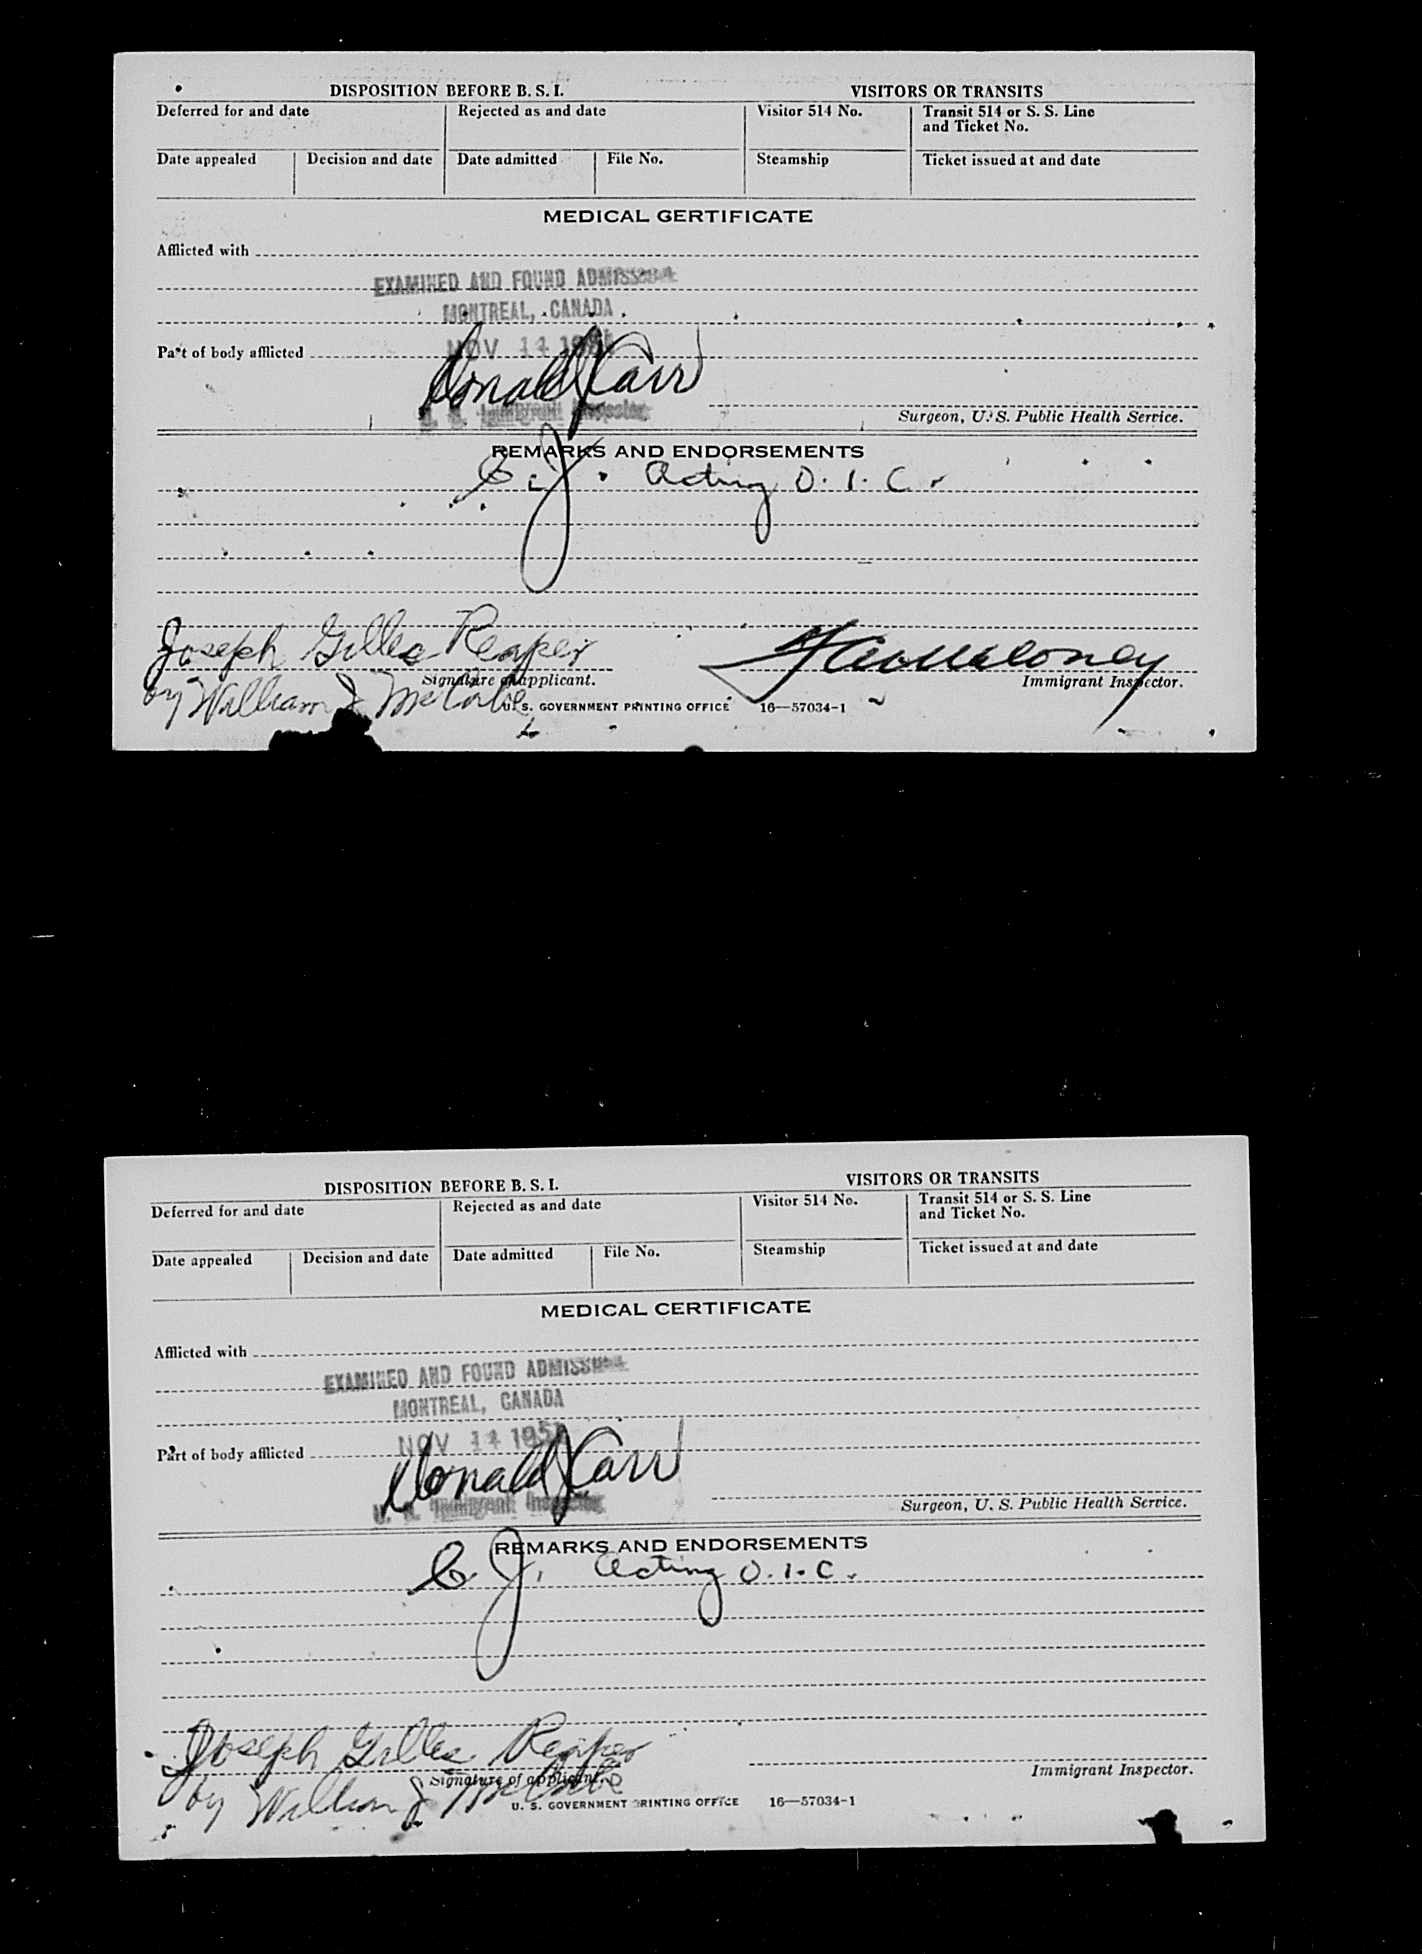 DISPOSITION BEFORE B. S. I. VISITORS OR TRANSITS
Deferred for and date Rejected as and date Visitor 514 No. Transit 514 or S. S. Line
and Ticket No.
Date appealed Decision and date Date admitted File No. Steamship Ticket issued at and date
MEDICAL CERTIFICATE
Afflicted with
EXAMINED AND FOUND ADMISSIBLE
MONTREAL, CANADA
NOV 14
Part of body afflicted
Donald J Carr
U. S. Immigrant Inspector
Surgeon, U. S. Public Health Service.
REMARKS AND ENDORSEMENTS
Acting O. I. C.
Joseph Gilles Reaper
Signature of applicant. Immigrant Inspector.
by William J McCabe
U. S. GOVERNMENT PRINTING OFFICE 16—57034-1
DISPOSITION BEFORE B. S. I. VISITORS OR TRANSITS
Deferred for and date Rejected as and date Visitor 514 No. Transit 514 or S. S. Line
and Ticket No.
Date appealed Decision and date Date admitted File No. Steamship Ticket issued at and date
MEDICAL CERTIFICATE
Afflicted with
EXAMINED AND FOUND ADMISSIBLE
MONTREAL, CANADA
NOV 14
Part of body afflicted
Donald J Carr
U. S. Immigrant Inspector
Surgeon, U. S. Public Health Service.
REMARKS AND ENDORSEMENTS
Acting O. I. C.
Joseph Gilles Reaper
Signature of applicant. Immigrant Inspector.
by William J McCabe
U. S. GOVERNMENT PRINTING OFFICE 16—57034-1